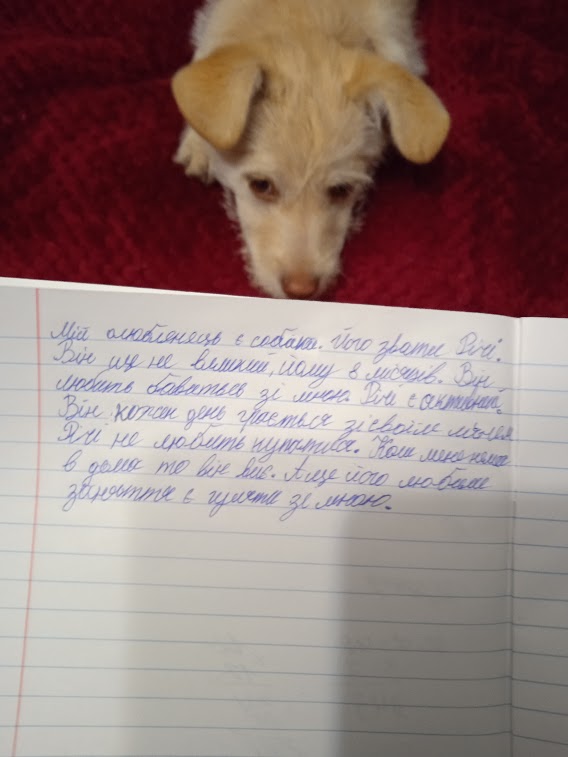 Мій олюбленець є собака. Його звати Річі.
Він ще не великий, йому 8 місяців. Він
любить баваться зі мною. Річі є активний.
Він кожан день грається зі своїм мячем
Річі не любить купатися. Коли мене нема
в дома то він виє. А ще його любиме
заняття є гуляти зі мною.